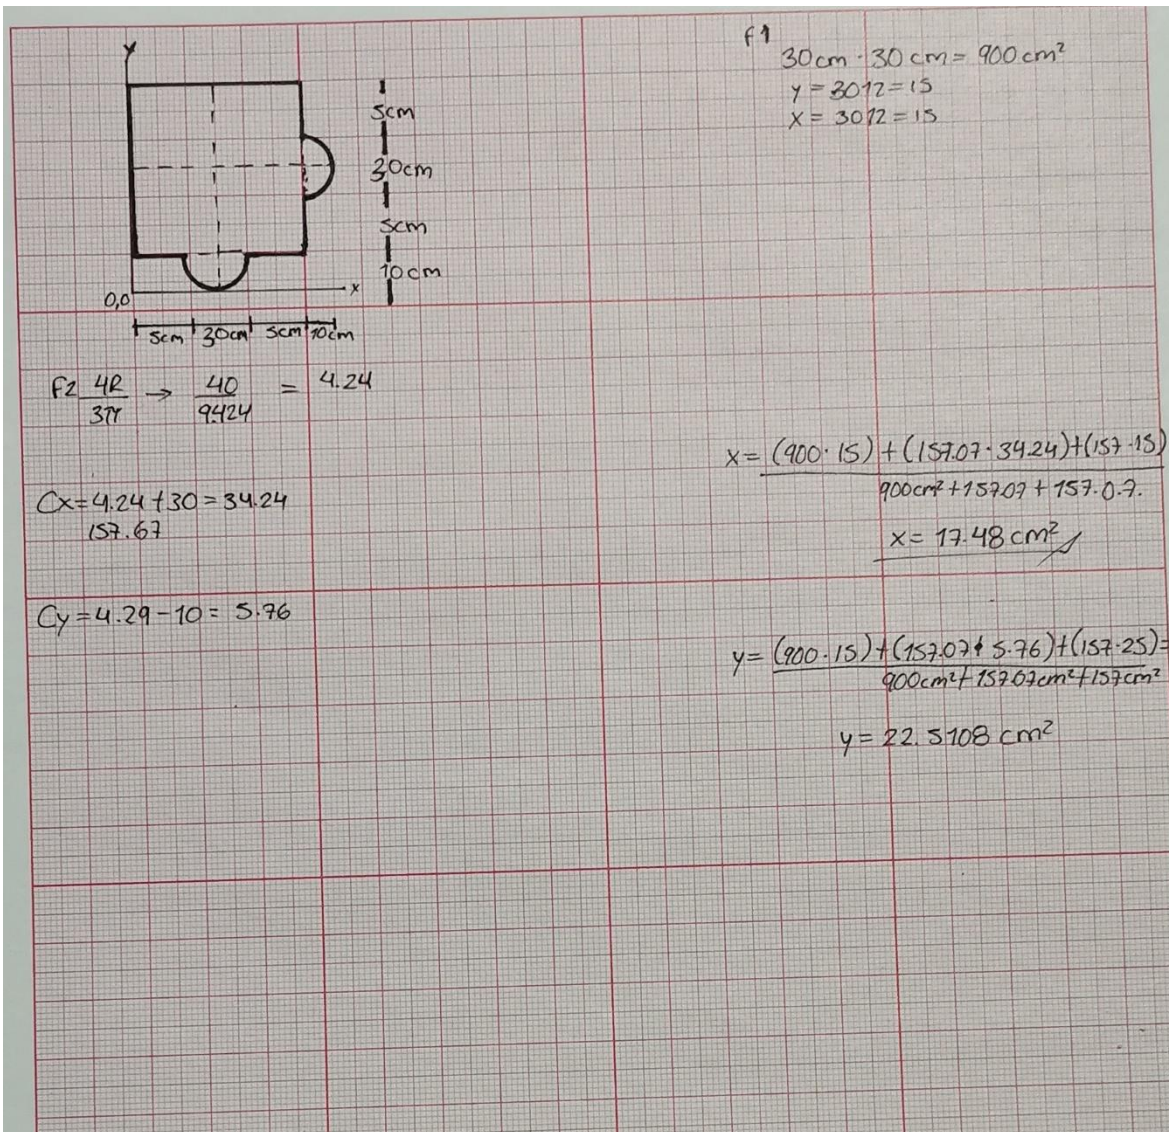 y
5cm
30cm
5cm
10cm
0,0
x
5cm 30cm 5cm 10cm
f1
30cm · 30cm = 900cm²
y = 30/2 = 15
x = 30/2 = 15
F2 4R/3π → 40/9.424 = 4.24
Cx = 4.24 + 30 = 34.24
157.67
Cy = 4.29 - 10 = 5.76
x = (900 · 15) + (157.07 · 34.24) + (157 · 15)
900cm² + 157.07 + 157.0.7.
x = 17.48 cm²
y = (900 · 15) + (157.07 + 5.76) + (157 · 25) =
900cm² + 157.07cm² + 157cm²
y = 22.5108 cm²